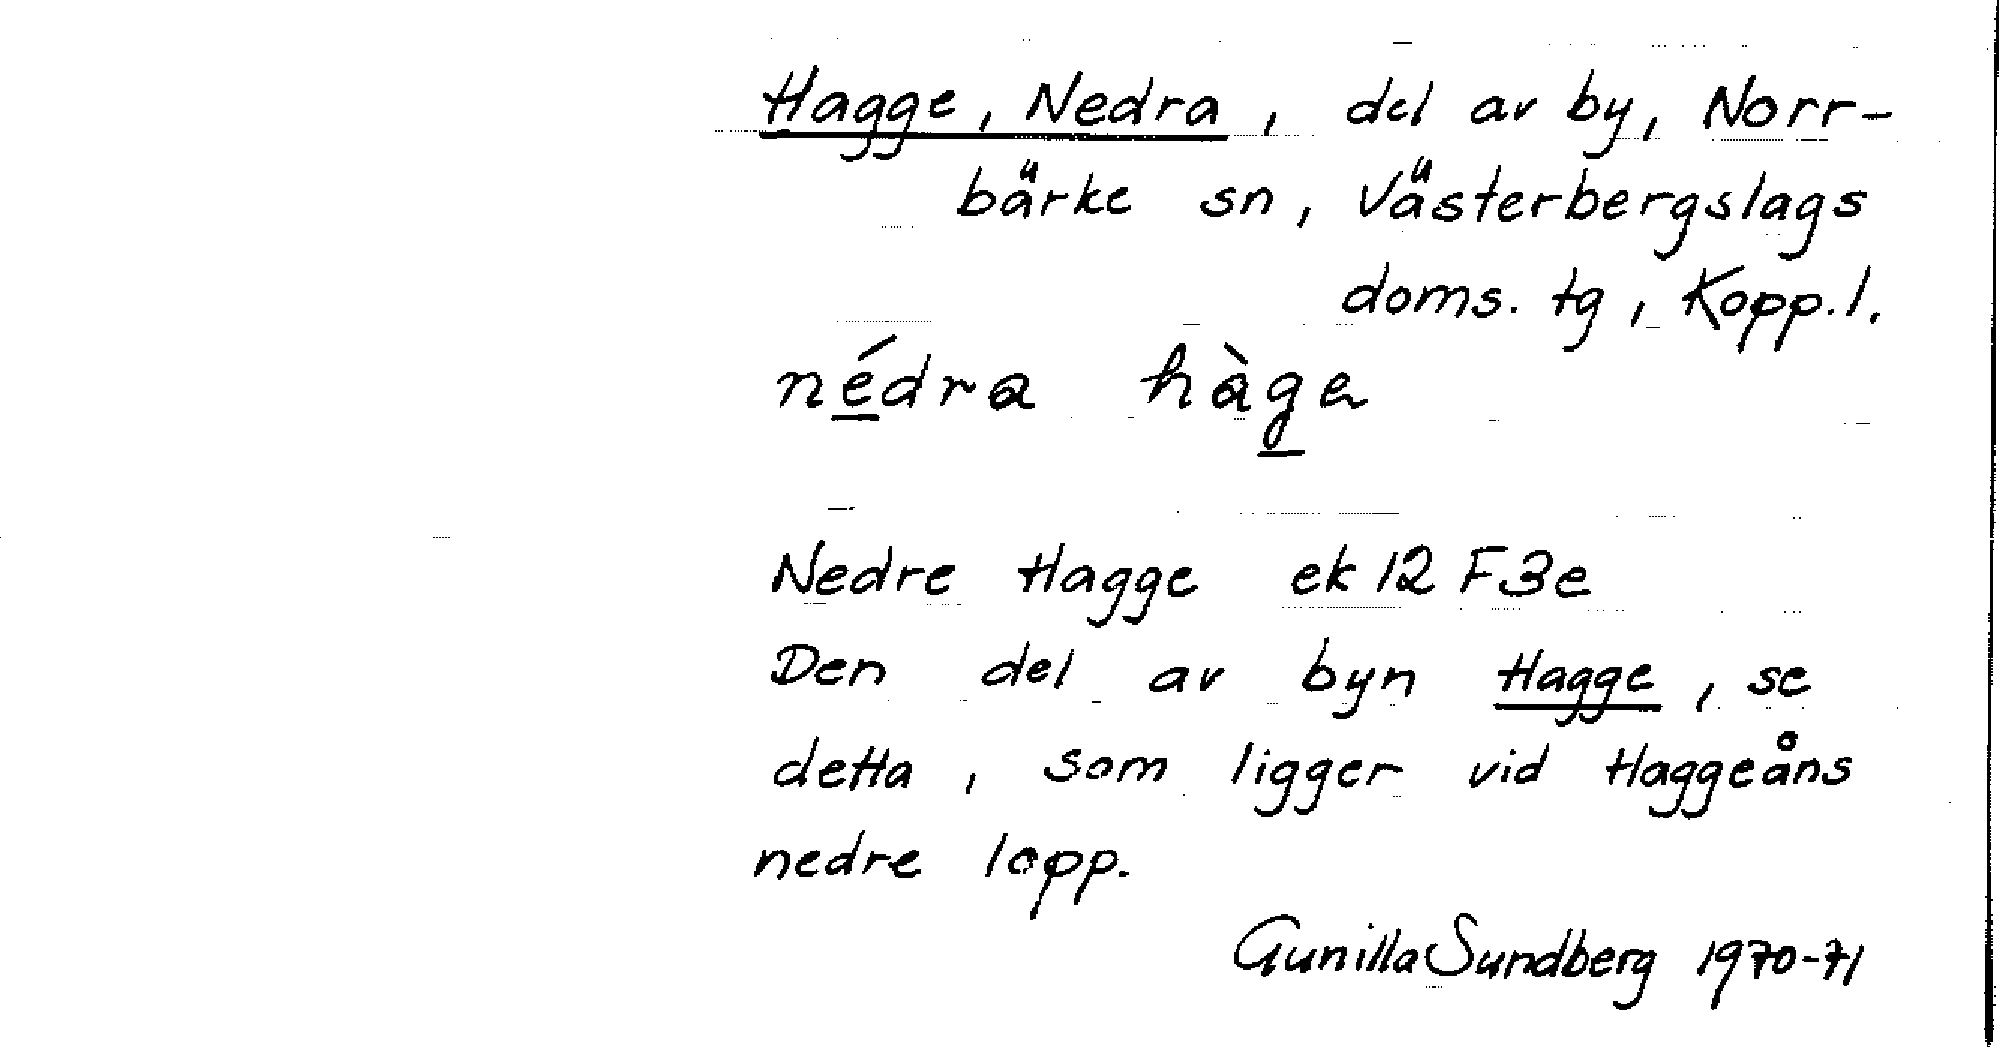 Hagge, Nedra, del av by, Norr-
bärke sn, Västerbergslags
doms. tg, Kopp. l.
nédra hàge
Nedre Hagge ek 12 F3e
Den del av byn Hagge, se
detta, som ligger vid Haggeåns
nedre lopp.
Gunilla Sundberg 1970-71